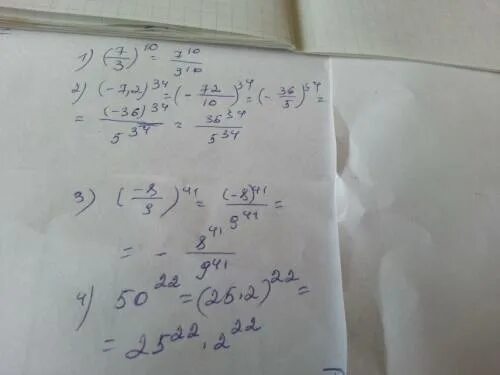 1) (7/3)^10 = 7^10/3^10
2) (-7,2)^34 = (-72/10)^34 = (-36/5)^34 =
= (-36)^34/5^34 = 36^34/5^34
3) (-8/9)^41 = (-8)^41/9^41 =
= - 8^41/9^41
4) 50^22 = (25·2)^22 =
= 25^22 · 2^22